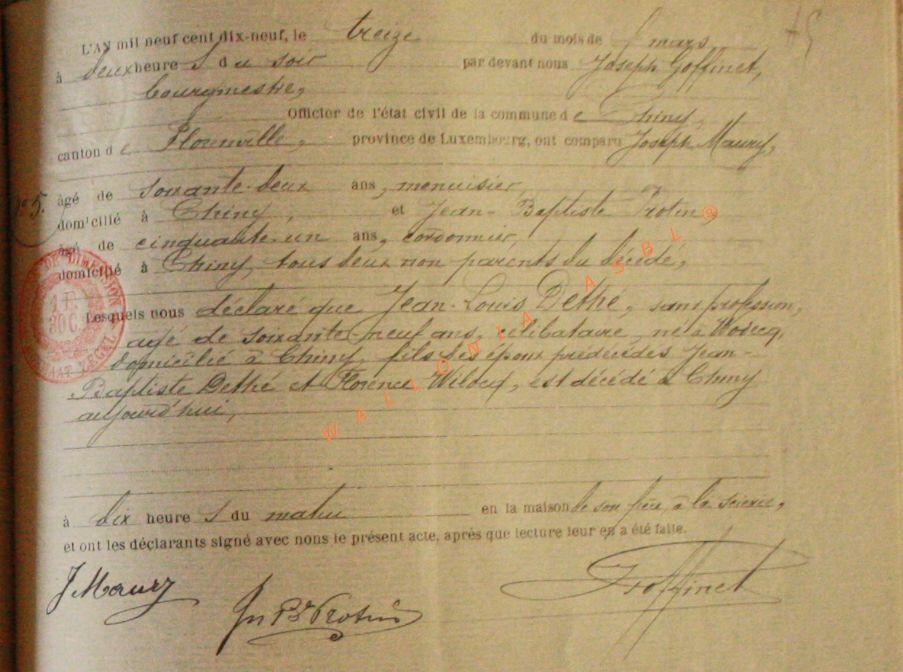 L'AN mil neuf cent dix-neuf, le treize du mois de mars,
à deux heure s du soir par devant nous Joseph Goffinet,
bourgmestre,
Officier de l'état civil de la commune de Chiny,
canton de Florenville, province de Luxembourg, ont comparu Joseph Maury,
N° 5.
âgé de soixante-deux ans, menuisier,
domicilié à Chiny, et Jean-Baptiste Protin,
âgé de cinquante-un ans, cordonnier,
domicilié à Chiny, tous deux non parents du décédé,
Lesquels nous déclaré que Jean-Louis Dethé, sans profession,
agé de soixante neuf ans, célibataire, né à Wodecq,
domicilié à Chiny, fils des époux prédécédés Jean-
Baptiste Dethé et Florence Wilocq, est décédé à Chiny
aujourd'hui,
à dix heure s du matin en la maison de son frère, à la scierie,
et ont les déclarants signé avec nous le présent acte, après que lecture leur en a été faite.
J Maury
Jn Bte Protin
J Goffinet
WALLONIA ASBL ®